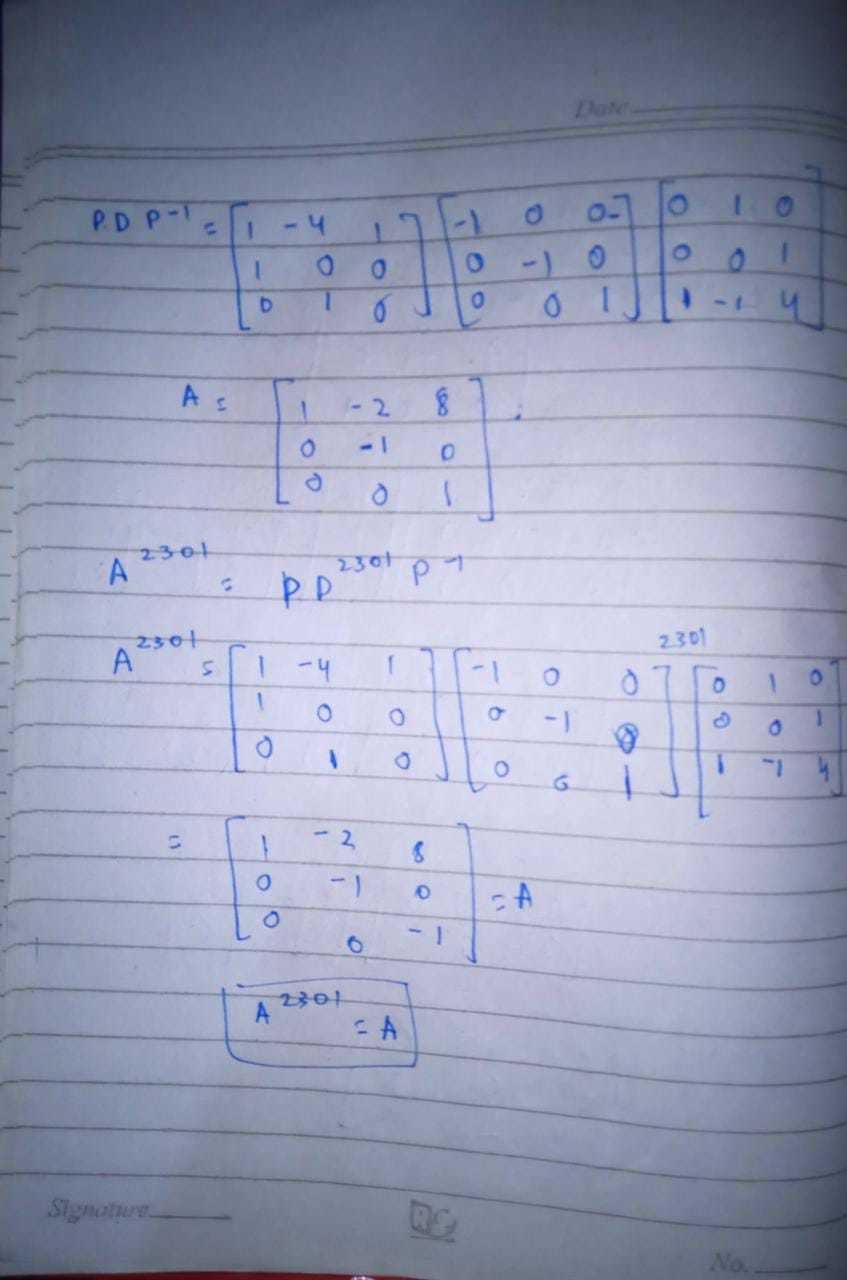 Date
P.D P-1 = [1 -4 1] [-1 0 0] [0 1 0]
[1 0 0] [0 -1 0] [0 0 1]
[0 1 0] [0 0 1] [1 -1 4]
A = [1 -2 8]
[0 -1 0]
[0 0 1]
A^2301 = P D^2301 P-1
2301
A^2301 = [1 -4 1] [-1 0 0] [0 1 0]
[1 0 0] [0 -1 0] [0 0 1]
[0 1 0] [0 0 1] [1 -1 4]
= [1 -2 8]
[0 -1 0] = A
[0 0 -1]
A^2301 = A
Signature
No.